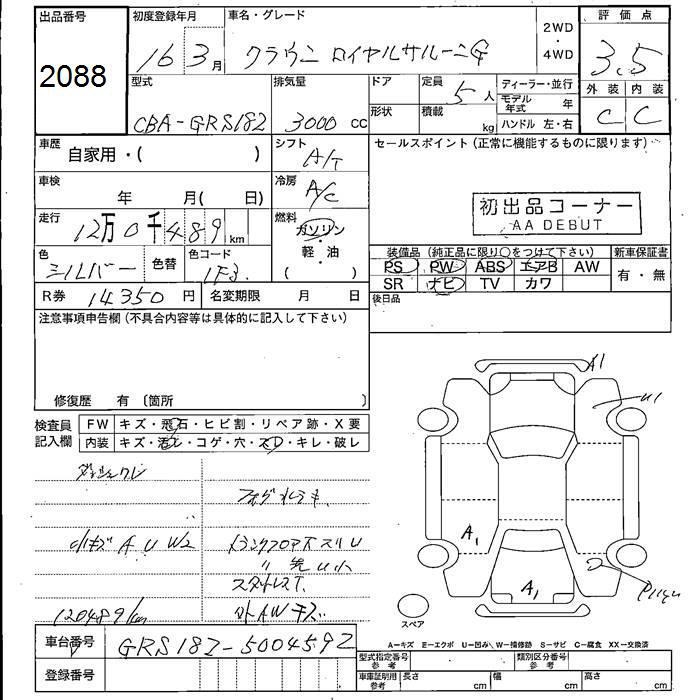 出品番号 初度登録年月 車名・グレード 2WD・4WD 評価点
2088 16 3月 クラウン ロイヤルサルーンG 3.5
型式 排気量 ドア 定員 5人 ディーラー・並行 外装 内装
CBA-GRS182 3000cc 形状 積載 kg モデル年式 年 C C
ハンドル 左・右
車歴 自家用・( ) シフト A/T セールスポイント(正常に機能するものに限ります)
車検 年 月( 日) 冷房 A/C
初出品コーナー
AA DEBUT
走行 12万0千489km 燃料 ガソリン・軽・油 ( )
色 シルバー 色替 色コード 1F3
装備品(純正品に限り○をつけて下さい) 新車保証書
PS PW ABS エアB AW 有・無
SR ナビ TV カワ
R券 14350円 名変期限 月 日 後日品
注意事項申告欄(不具合内容等は具体的に記入して下さい)
修復歴 有〔箇所 〕
検査員記入欄 FW キズ・飛石・ヒビ割・リペア跡・X要
内装 キズ・汚レ・コゲ・穴・スレ・キレ・破レ
A1
U1
小キズ A U W2
A1
A1
スタットレスT.
外AWキズ
120489km
スペア
車台番号 GRS182-5004592
A=キズ E=エクボ U=凹み W=補修跡 S=サビ C=腐食 XX=交換済
登録番号
型式指定番号参考 類別区分番号参考
車庫証明用参考 長さ cm 幅 cm 高さ cm